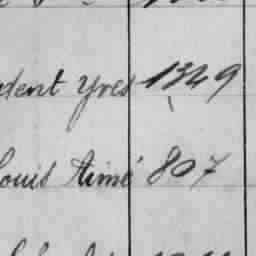 dent Yves 1349
Louis Aimé 807